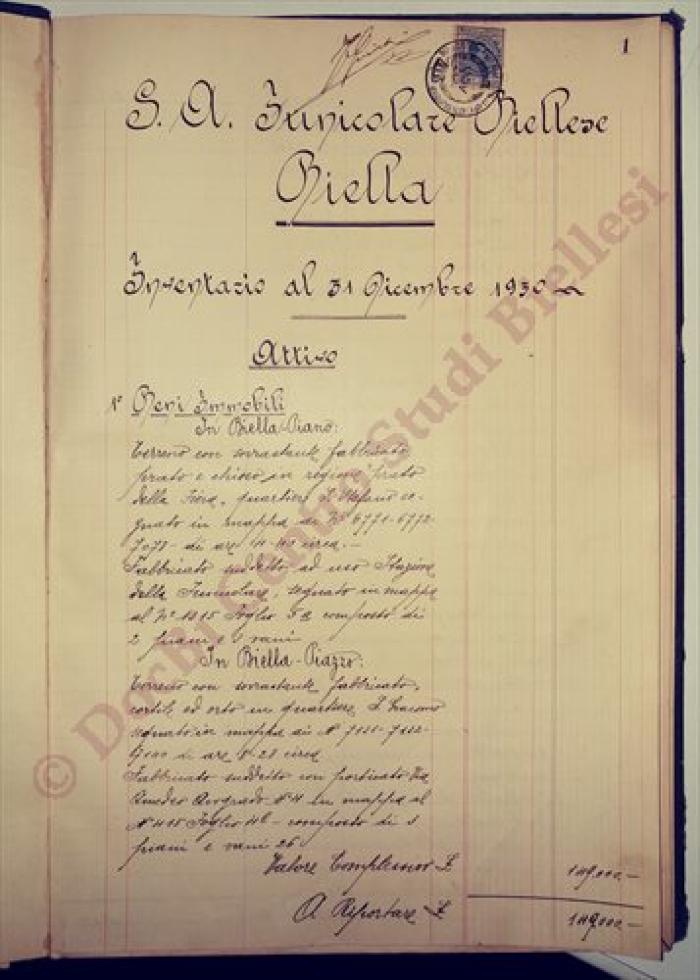 1
S. A. Funicolare Biellese
Biella
Inventario al 31 Dicembre 1930
Attivo
1° Beni Immobili
In Biella-Piano:
Terreno con sovrastante fabbricato
prato e chioso in regione prato
della Fiera, quartiere S. Stefano se-
gnato in mappa ai Ni 6771-6772-
7078- di are circa.-
Fabbricato suddetto ad uso Stazione
della Funicolare, segnato in mappa
al N° 1015 Foglio composto di
2 piani e vani
In Biella-Piazzo:
Terreno con sovrastante fabbricato,
cortile ed orto in quartiere S. Giacomo
segnato in mappa ai N
di are circa
Fabbricato suddetto con porticato Via
Amedeo Avogrado N° 4 in mappa al
N° 415 Foglio composto di 3
piani e vani 26
Valore Complessivo £ 149,000.-
A Reportare £ 149,000.-
© DocBi Centro Studi Biellesi